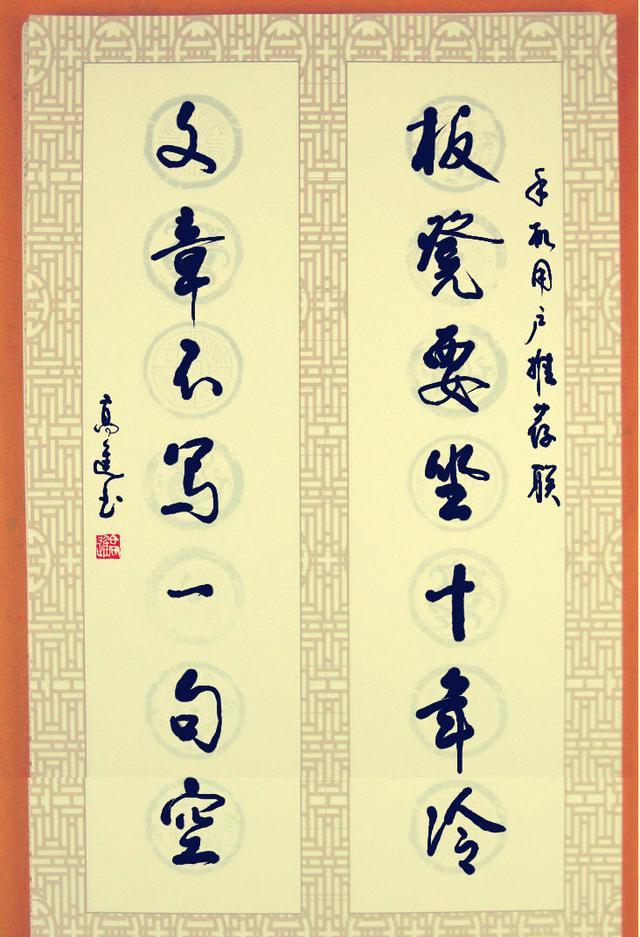 手机用户推荐联
板凳要坐十年冷
文章不写一句空
高進书